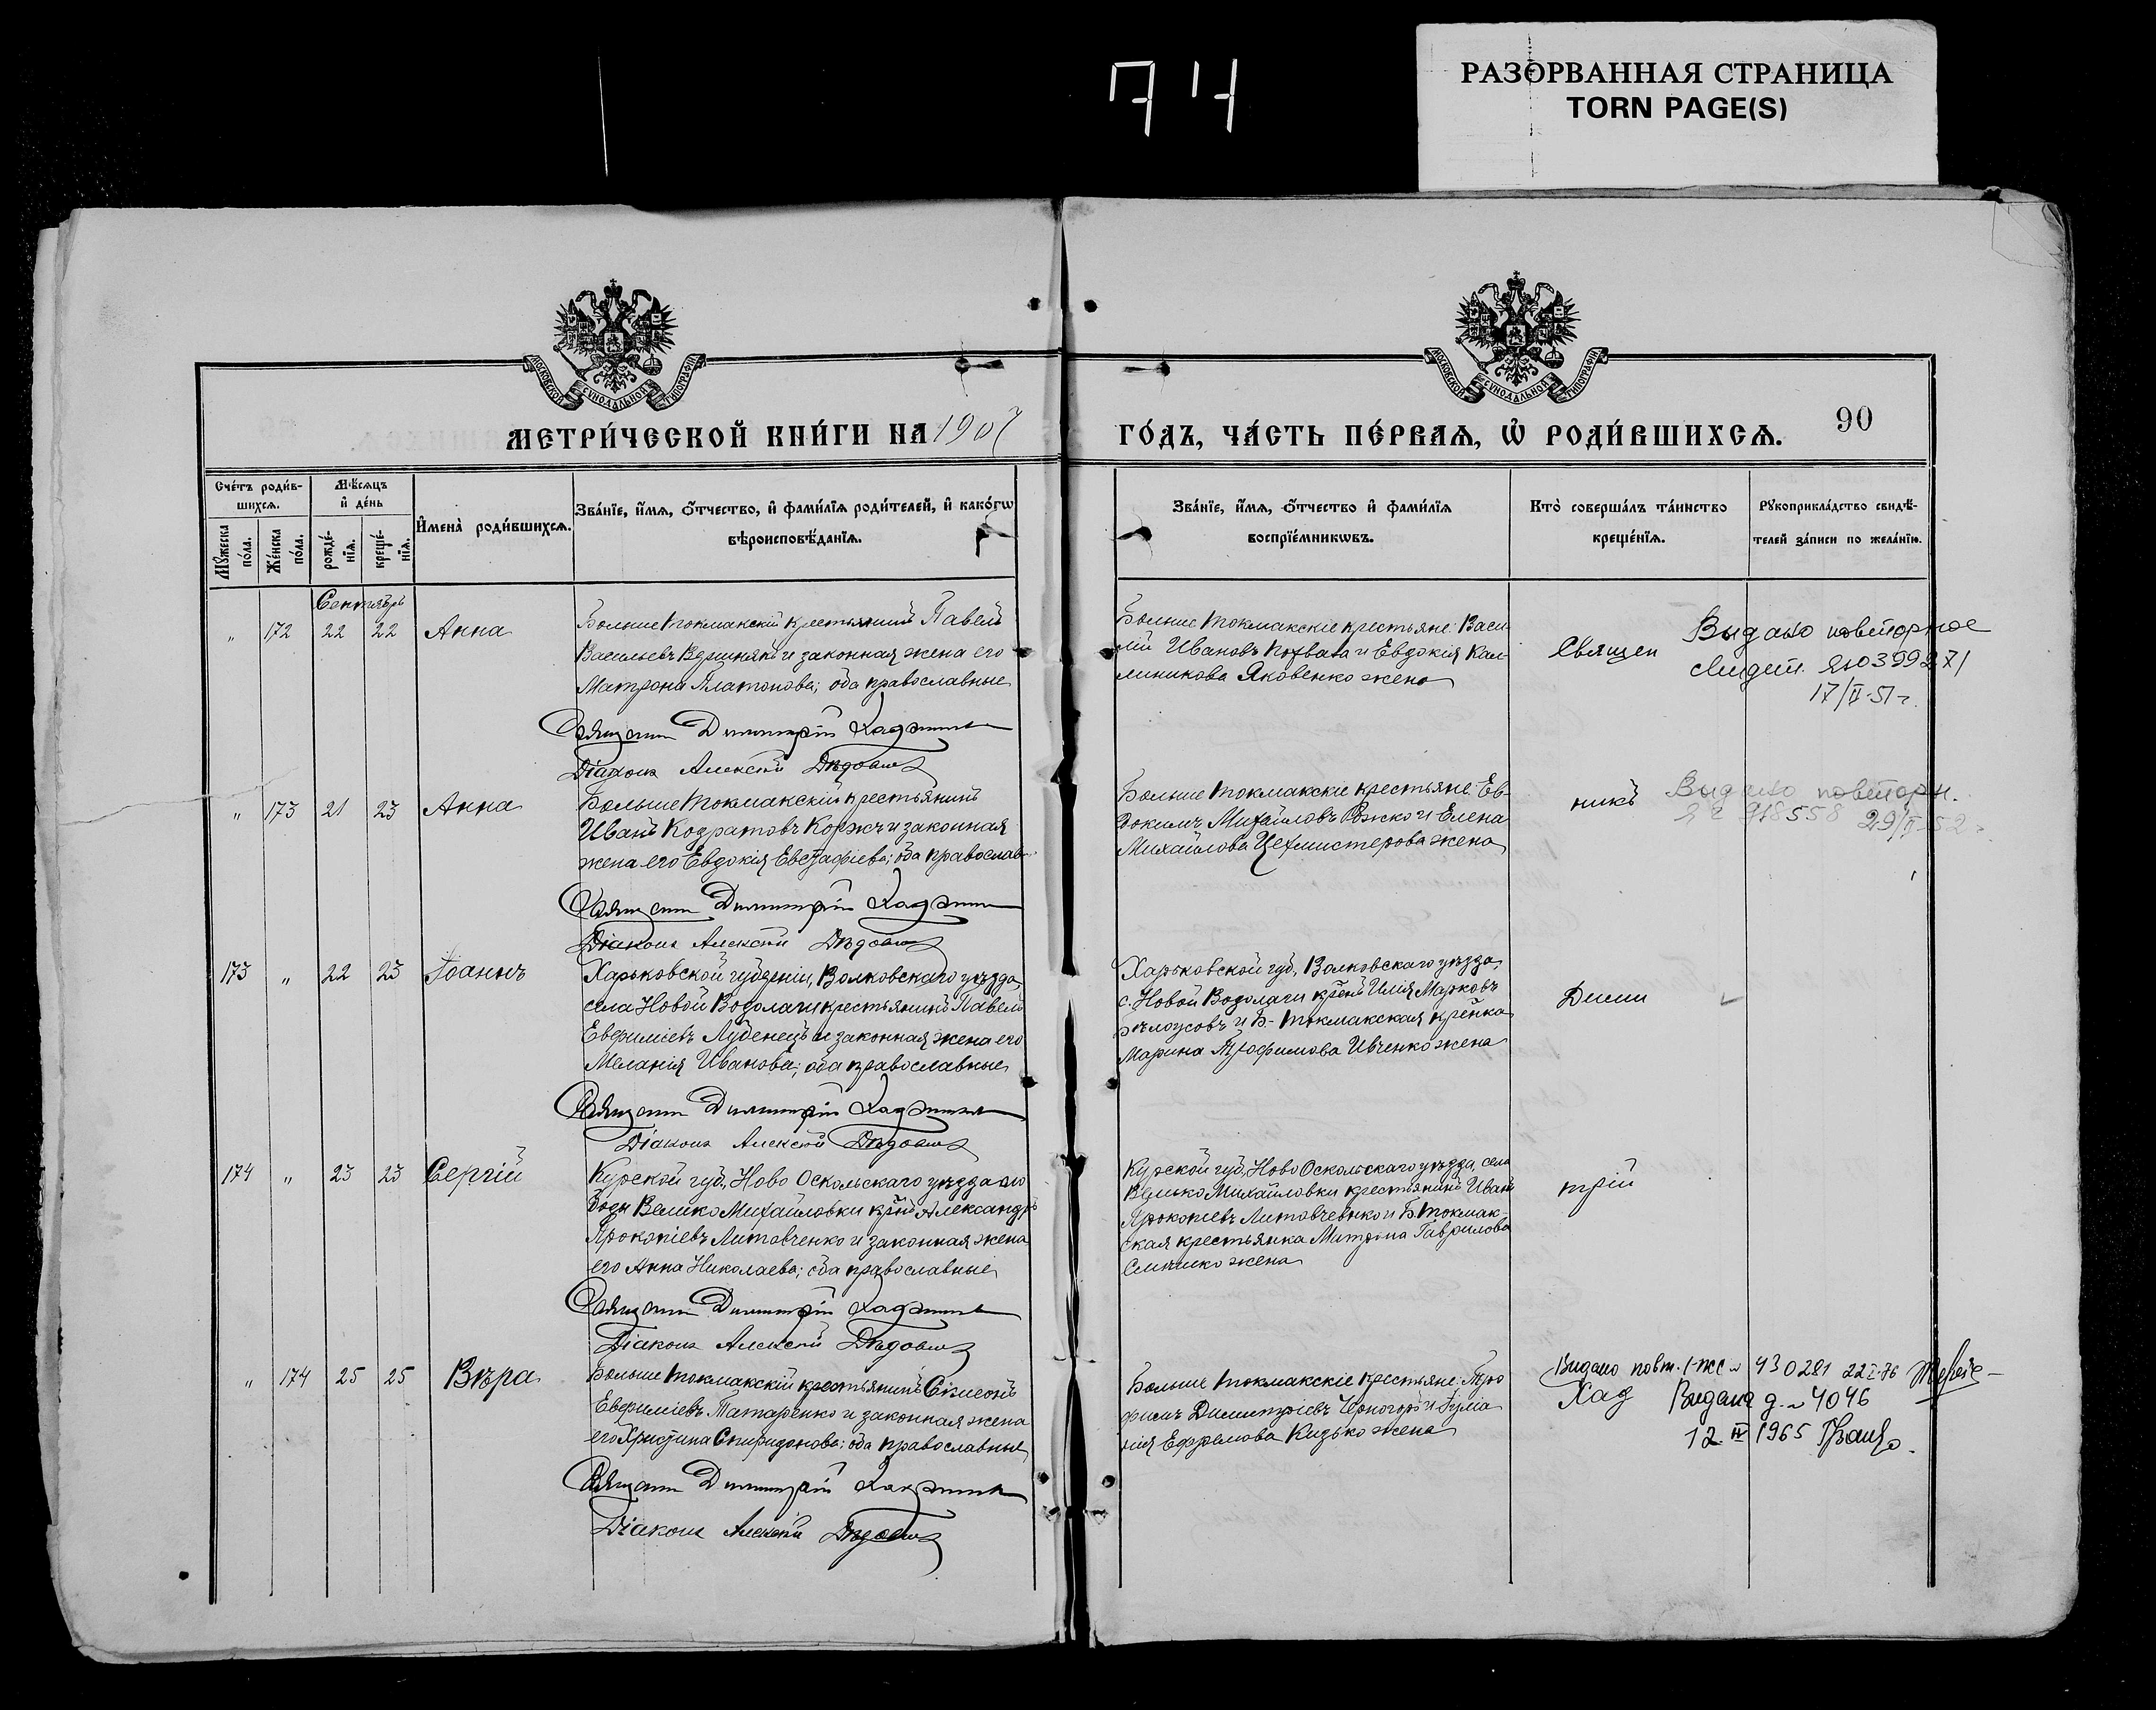 74
РАЗОРВАННАЯ СТРАНИЦА
TORN PAGE(S)
МОСКОВСКОЙ СѴНОДАЛЬНОЙ ТИПОГРАФІИ
МОСКОВСКОЙ СѴНОДАЛЬНОЙ ТИПОГРАФІИ
МЕТРИ́ЧЕСКОЙ КНИ́ГИ НА 1907
ГО́ДЪ, ЧА́СТЬ ПЕ́РВАѦ, Ѡ҆ РОДИ́ВШИХСѦ.
90
Сче́тъ роди́в-
шихсѧ.
Мꙋжеска по́ла.
Же́нска по́ла.
Мѣ́сѧцъ
и҆ де́нь
рожде́-
нїѧ.
креще́-
нїѧ.
И҆мена̀ роди́вшихсѧ.
Зва́нїе, и҆́мѧ, ѻ҆́тчество, и҆ фами́лїѧ роди́телей, и҆ како́гѡ
вѣроисповѣ́данїѧ.
Зва́нїе, и҆́мѧ, ѻ҆́тчество и҆ фами́лїѧ
воспрїе́мникѡвъ.
Кто̀ соверша́лъ та́инство
креще́нїѧ.
Рꙋкоприкла́дство свидѣ́-
телей за́писи по жела́нїю.
Сентябрь
" 172 22 22 Анна
БольшеТокмакскій крестьянинъ Павелъ
Васильевъ и законная жена его
Матрона Платонова; оба православные
Священ Димитрій
Діаконъ Алексій Дѣдовичъ
БольшеТокмакскіе крестьяне: Васи-
лій Ивановъ и Евдокія Кал-
линикова Яковенко жена
Священ
Выдано повторное
свидет. ЯЮ 399271
17/II-51 г.
" 173 21 23 Анна
БольшеТокмакскій крестьянинъ
Иванъ Кодратовъ Коржъ и законная
жена его Евдокія Евстафіева; оба православ.
Священ Димитрій
Діаконъ Алексій Дѣдовичъ
БольшеТокмакскіе крестьяне Ев-
докимъ Михайловъ и Елена
Михайлова Цехмистерова жена
никъ
Выдано повторн.
918558 29/II 52 г.
173 " 22 23 Іоаннъ
Харьковской губерніи, Волковскаго уѣзда,
села Новой Водолаги крестьянинъ Павелъ
Евфиміевъ Луденецъ и законная жена его
Меланія Иванова; оба православные
Священ Димитрій
Діаконъ Алексій Дѣдовичъ
Харьковской губ, Волковскаго уѣзда,
с. Новой Водолаги крѣнъ Илія Марковъ
Бѣлоусовъ и Б-Токмакская крѣнка
Марина Трофимова Ивченко жена
Дими
174 " 23 23 Сергій
Курской губ, Ново Оскольскаго уѣзда сло
боды ВеликоМихайловки крнъ Александръ
Прокопіевъ Литовченко и законная жена
его Анна Николаева; оба православные
Священ Димитрій
Діаконъ Алексій Дѣдовичъ
Курской губ, Ново Оскольскаго уѣзда, села
Велико Михайловки крестьянинъ Иванъ
Прокопіевъ Литовченко и Б.Токмак-
ская крестьянка Матрона Гаврилова
жена
трій
" 174 25 25 Вѣра
БольшеТокмакскій крестьянинъ Сімеонъ
Евфиміевъ Татаренко и законная жена
его Христина Спиридонова; оба православные
Священ Димитрій
Діаконъ Алексій Дѣдовичъ
БольшеТокмакскіе крестьяне: Тро
фимъ Димитріевъ Черногоръ и Іулiа
нія Ефремова Кидько жена
Хад
Видано повт. I-ЖС № 430281 22 I-76
Видана д. № 4046
12 IV 1965